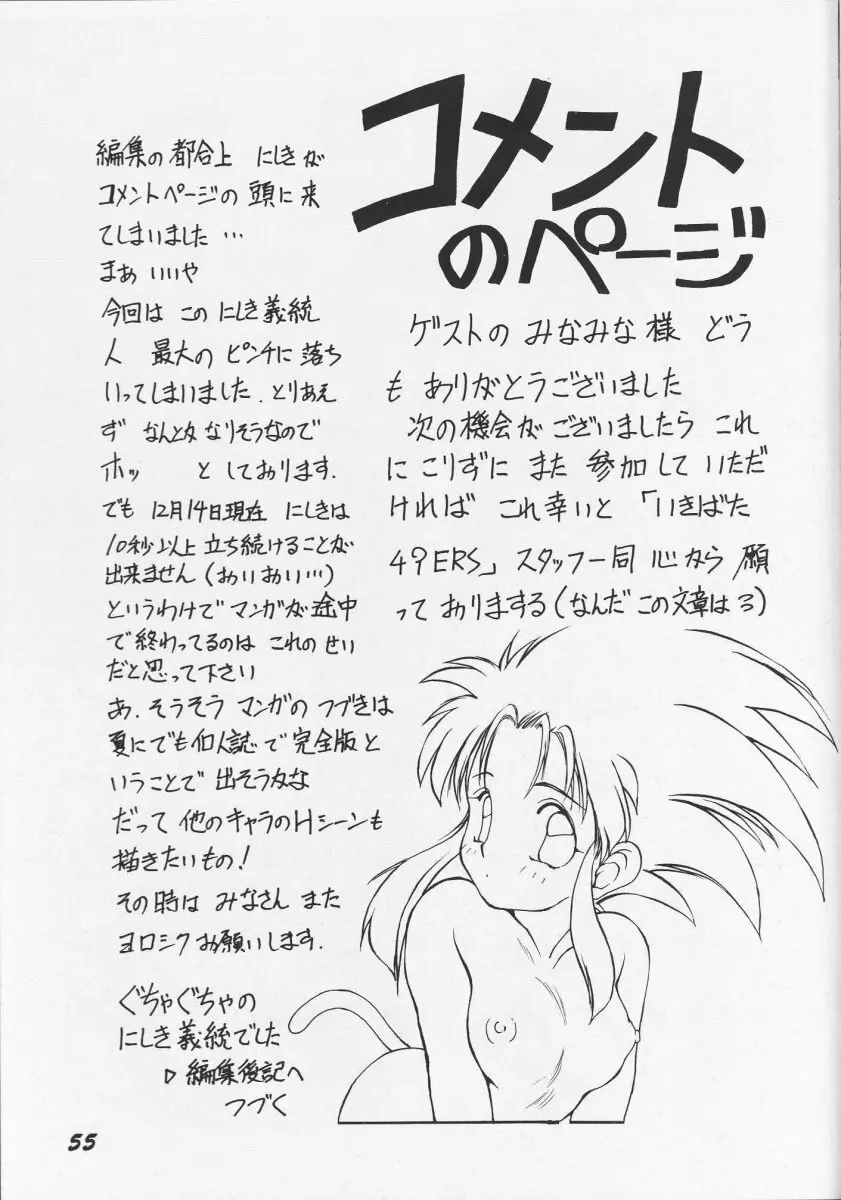 コメント
のページ
編集の都合上 にしきが
コメントページの頭に来
てしまいました…
まぁいいや
今回は この にしき義統
人 最大の ピンチに 落ち
いってしまいました.とりあえ
ず なんとか なりそうなので
ホッ としております.
でも 12月14日現在 にしきは
10秒以上 立ち続けることが
出来ません(おいおい…)
というわけで マンガが 途中
で終わってるのは これの せい
だと思って下さい
あ.そうそう マンガの つづきは
夏にでも個人誌で 完全版と
いうことで 出そうかな
だって 他のキャラのHシーンも
描きたいもの!
その時は みなさん また
ヨロシク お願いします.
ぐちゃぐちゃの
にしき義統でした
▷編集後記へ
つづく
ゲストの みなみな様 どう
も ありがとうございました
次の機会が ございましたら これ
に こりずに また 参加して いただ
ければ これ幸いと 「いきばた
49ERS」スタッフ一同 心から 願
って おりまする(なんだ この文章は3)
55